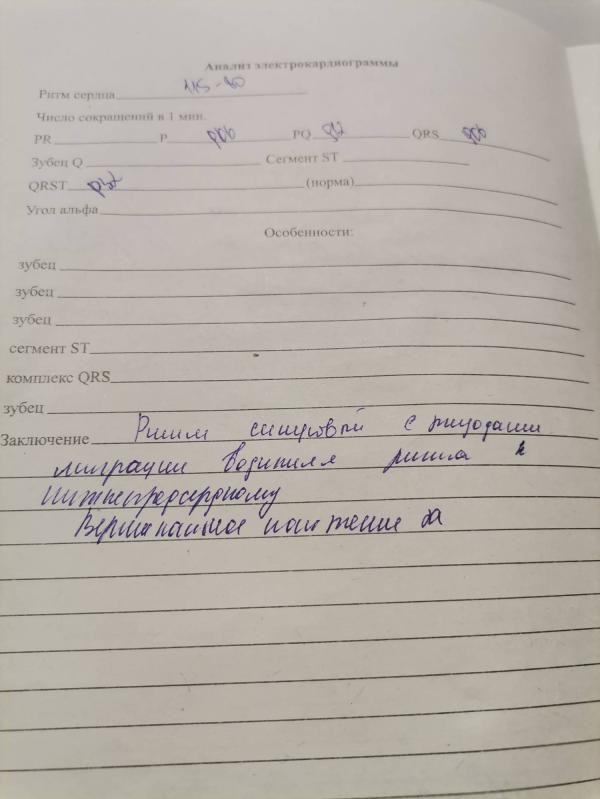 Анализ электрокардиограммы
Ритм сердца 115-80
Число сокращений в 1 мин.
PR P 006 PQ QRS 006
Зубец Q Сегмент ST
QRST 032 (норма)
Угол альфа
Особенности:
зубец
зубец
зубец
сегмент ST
комплекс QRS
зубец
Заключение Ритм синусовый с эпизодами
миграции водителя ритма к
нижнепредсердному
Вертикальное положение